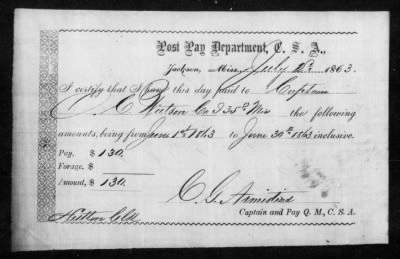 Post Pay Department, C. S. A.,
Jackson, Miss., July 1863.
I certify that I have this day paid to Captain
J. C. Co I 35th Mis the following
amounts, being from June 1st 1863 to June 30th 1863 inclusive.
Pay, $ 130.
Forage, $
Amount, $ 130.
C. G. Armistead
Captain and Pay Q. M., C. S. A.